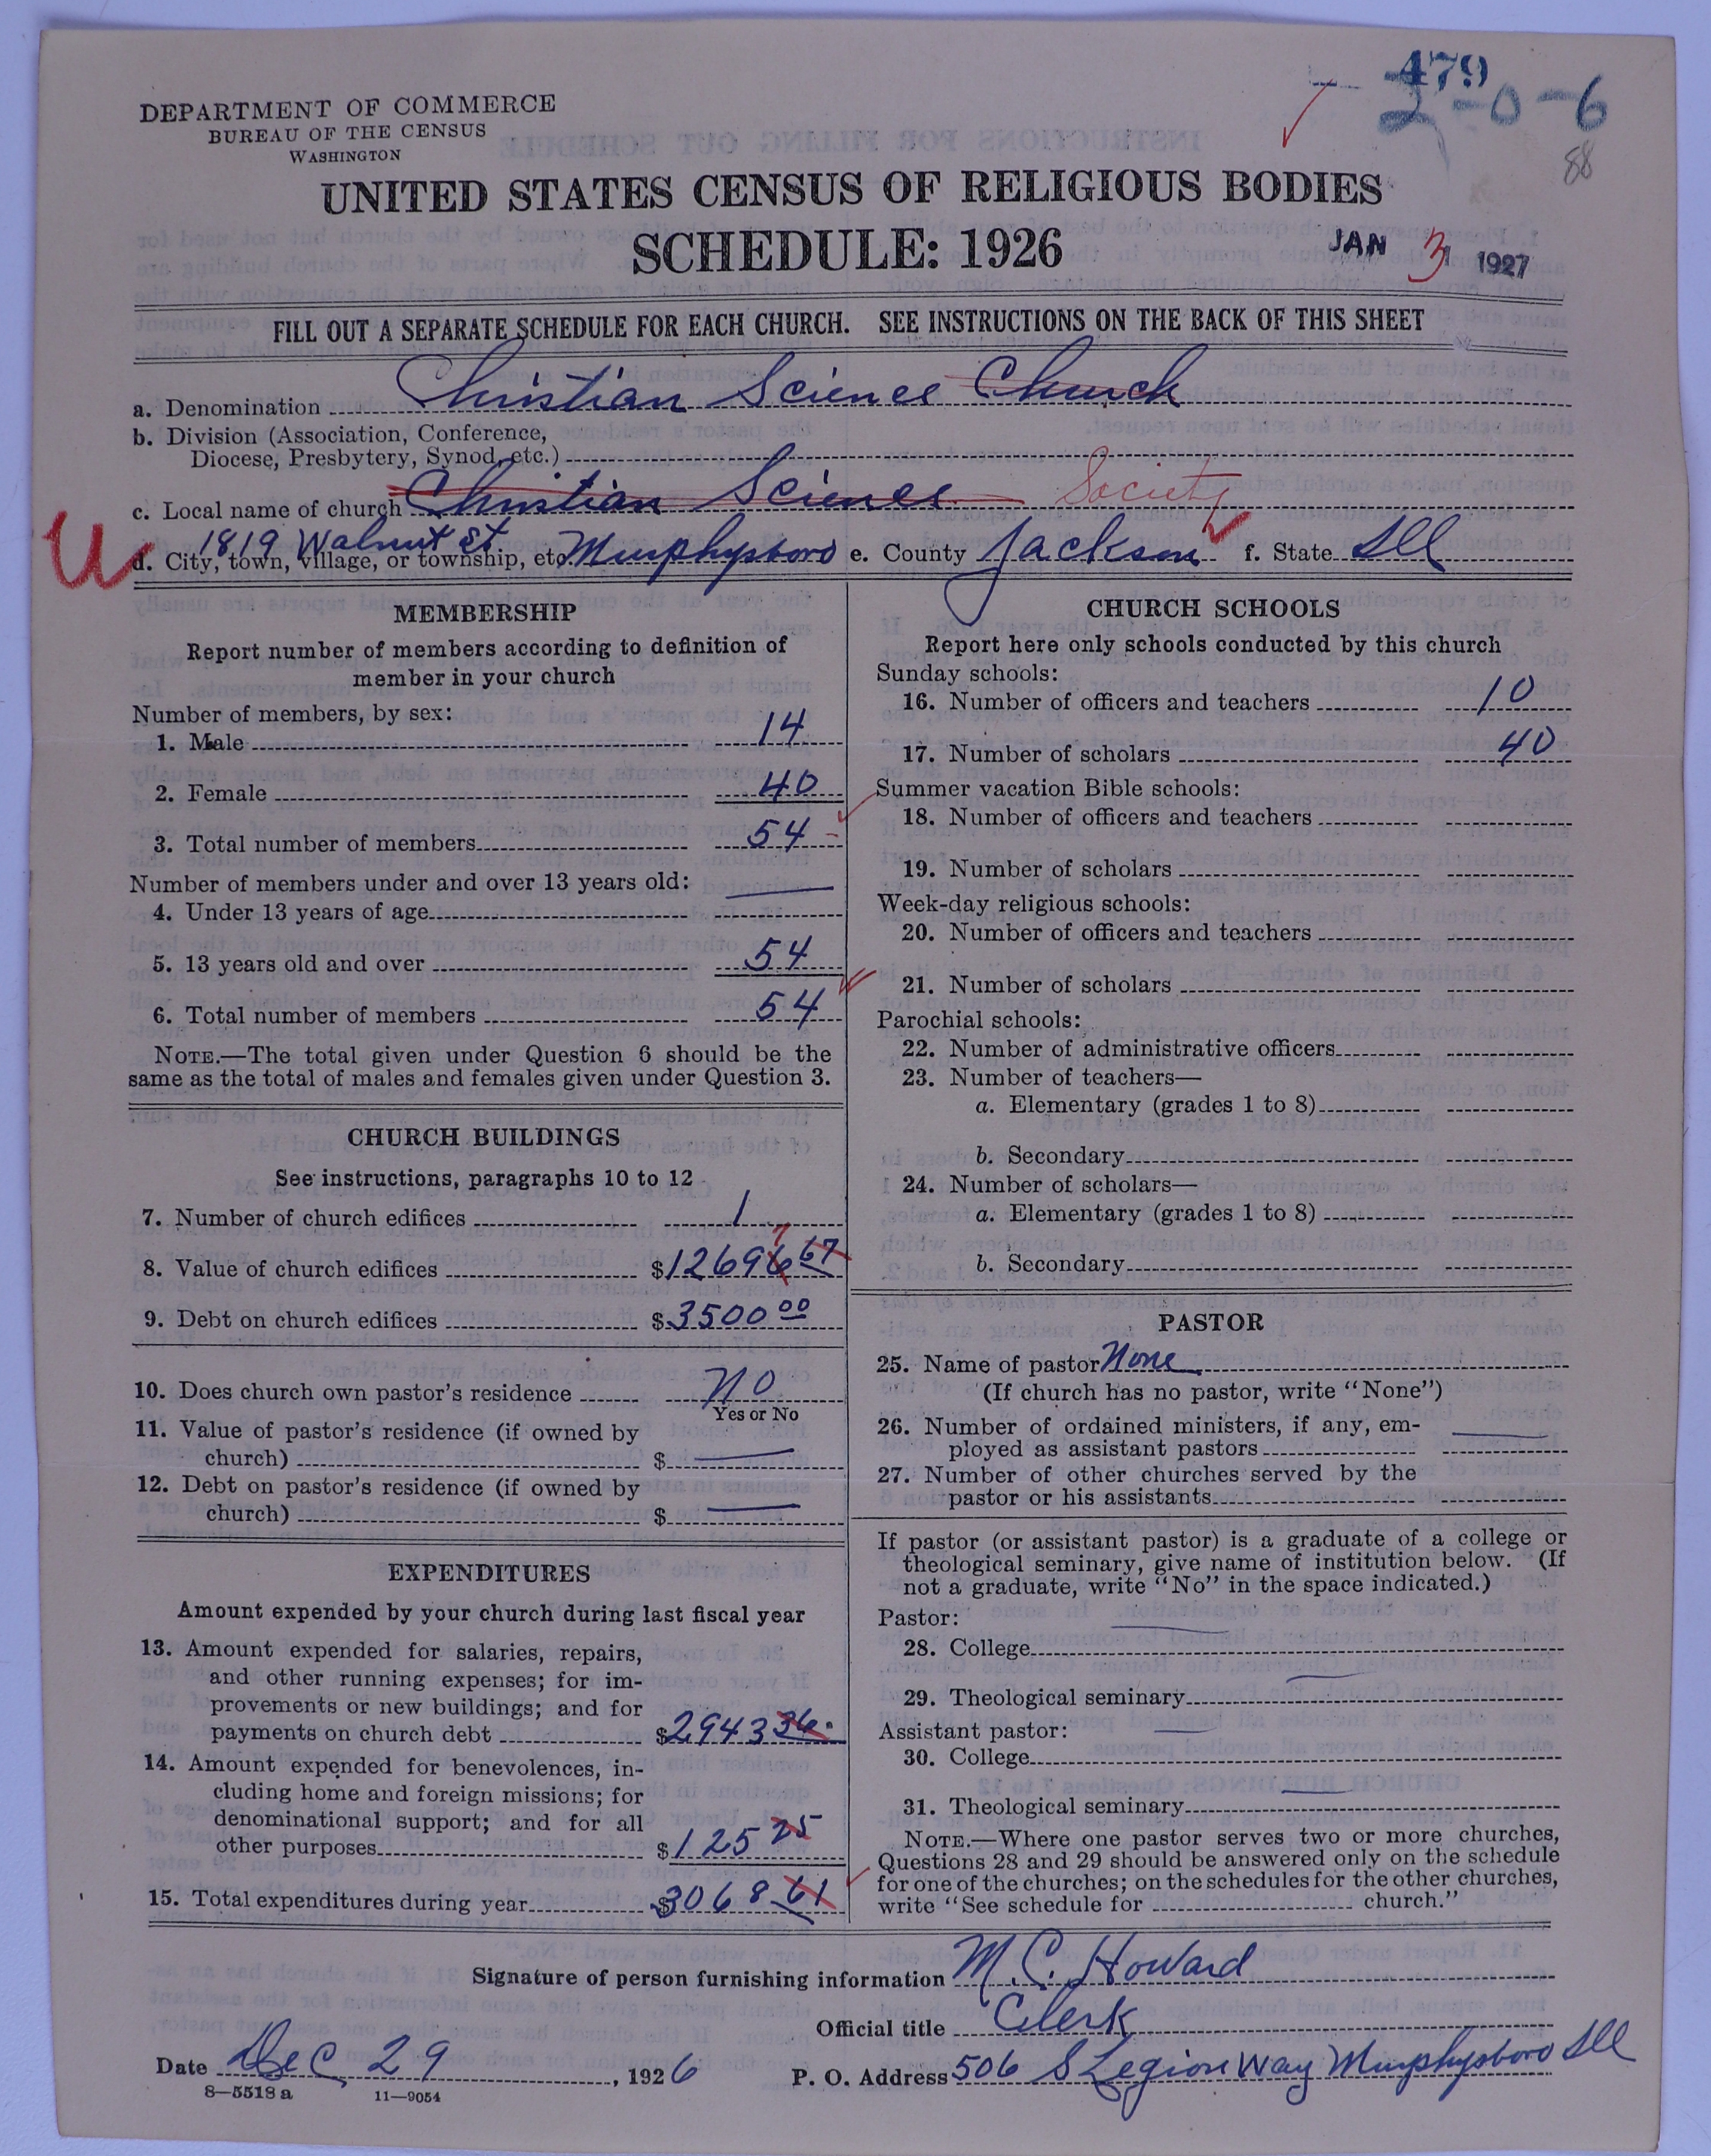 479
2-0-6
88
DEPARTMENT OF COMMERCE
BUREAU OF THE CENSUS
WASHINGTON
UNITED STATES CENSUS OF RELIGIOUS BODIES
SCHEDULE: 1926
JAN 3 1927
FILL OUT A SEPARATE SCHEDULE FOR EACH CHURCH. SEE INSTRUCTIONS ON THE BACK OF THIS SHEET
a. Denomination Christian Science Church
b. Division (Association, Conference,
Diocese, Presbytery, Synod, etc.)
c. Local name of church Christian Science Society
1819 Walnut St
d. City, town, village, or township, etc. Murphysboro e. County Jackson f. State Ill
U
MEMBERSHIP
Report number of members according to definition of
member in your church
Number of members, by sex:
1. Male 14
2. Female 40
3. Total number of members 54
Number of members under and over 13 years old:
4. Under 13 years of age
5. 13 years old and over 54
6. Total number of members 54
NOTE.—The total given under Question 6 should be the
same as the total of males and females given under Question 3.
CHURCH BUILDINGS
See instructions, paragraphs 10 to 12
7. Number of church edifices 1
7
8. Value of church edifices $12696 67
9. Debt on church edifices $3500 00
10. Does church own pastor's residence No
Yes or No
11. Value of pastor's residence (if owned by
church) $
12. Debt on pastor's residence (if owned by
church) $
EXPENDITURES
Amount expended by your church during last fiscal year
13. Amount expended for salaries, repairs,
and other running expenses; for im-
provements or new buildings; and for
payments on church debt $2943 36
14. Amount expended for benevolences, in-
cluding home and foreign missions; for
denominational support; and for all
other purposes $125 25
15. Total expenditures during year $3068 61
CHURCH SCHOOLS
Report here only schools conducted by this church
Sunday schools:
16. Number of officers and teachers 10
17. Number of scholars 40
Summer vacation Bible schools:
18. Number of officers and teachers
19. Number of scholars
Week-day religious schools:
20. Number of officers and teachers
21. Number of scholars
Parochial schools:
22. Number of administrative officers
23. Number of teachers—
a. Elementary (grades 1 to 8)
b. Secondary
24. Number of scholars—
a. Elementary (grades 1 to 8)
b. Secondary
PASTOR
25. Name of pastor None
(If church has no pastor, write "None")
26. Number of ordained ministers, if any, em-
ployed as assistant pastors
27. Number of other churches served by the
pastor or his assistants
If pastor (or assistant pastor) is a graduate of a college or
theological seminary, give name of institution below. (If
not a graduate, write "No" in the space indicated.)
Pastor:
28. College
29. Theological seminary
Assistant pastor:
30. College
31. Theological seminary
NOTE.—Where one pastor serves two or more churches,
Questions 28 and 29 should be answered only on the schedule
for one of the churches; on the schedules for the other churches,
write "See schedule for church."
Signature of person furnishing information M. C. Howard
Official title Clerk
Date Dec 29, 1926 P. O. Address 506 S Legion Way Murphysboro Ill
8—5518 a 11—9054